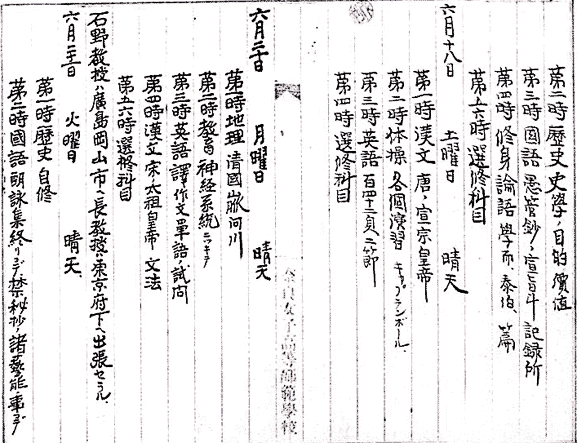 第二時歴史 史学ノ目的 價値
第三時國語 愚管鈔ノ宣旨斗 記録所
第四時修身 論語 学而、泰伯、篇
第五六時 選修科目
六月十八日 土曜日 晴天
第一時 漢文 唐ノ宣宗皇帝
第二時 体操 各個演習 キャプテンボール、
第三時 英語 百四十二頁二節
第四時 選修科目
奈良女子高等師範學校
六月二十日 月曜日 晴天
第一時 地理 清國 河川
第二時 教育 神経系統ニツキテ
第三時 英語 譯 作文 單語ノ試問
第四時 漢文 宋太祖皇帝 文法
第五六時 選修科目
石野教授ハ廣島岡山市ヘ、長教授ハ東京府下ヘ出張セラル、
六月二十一日 火曜日 晴天、
第一時 歴史 自修
第二時 國語 朗詠集終リテ禁秘抄ノ諸藝能事マデ